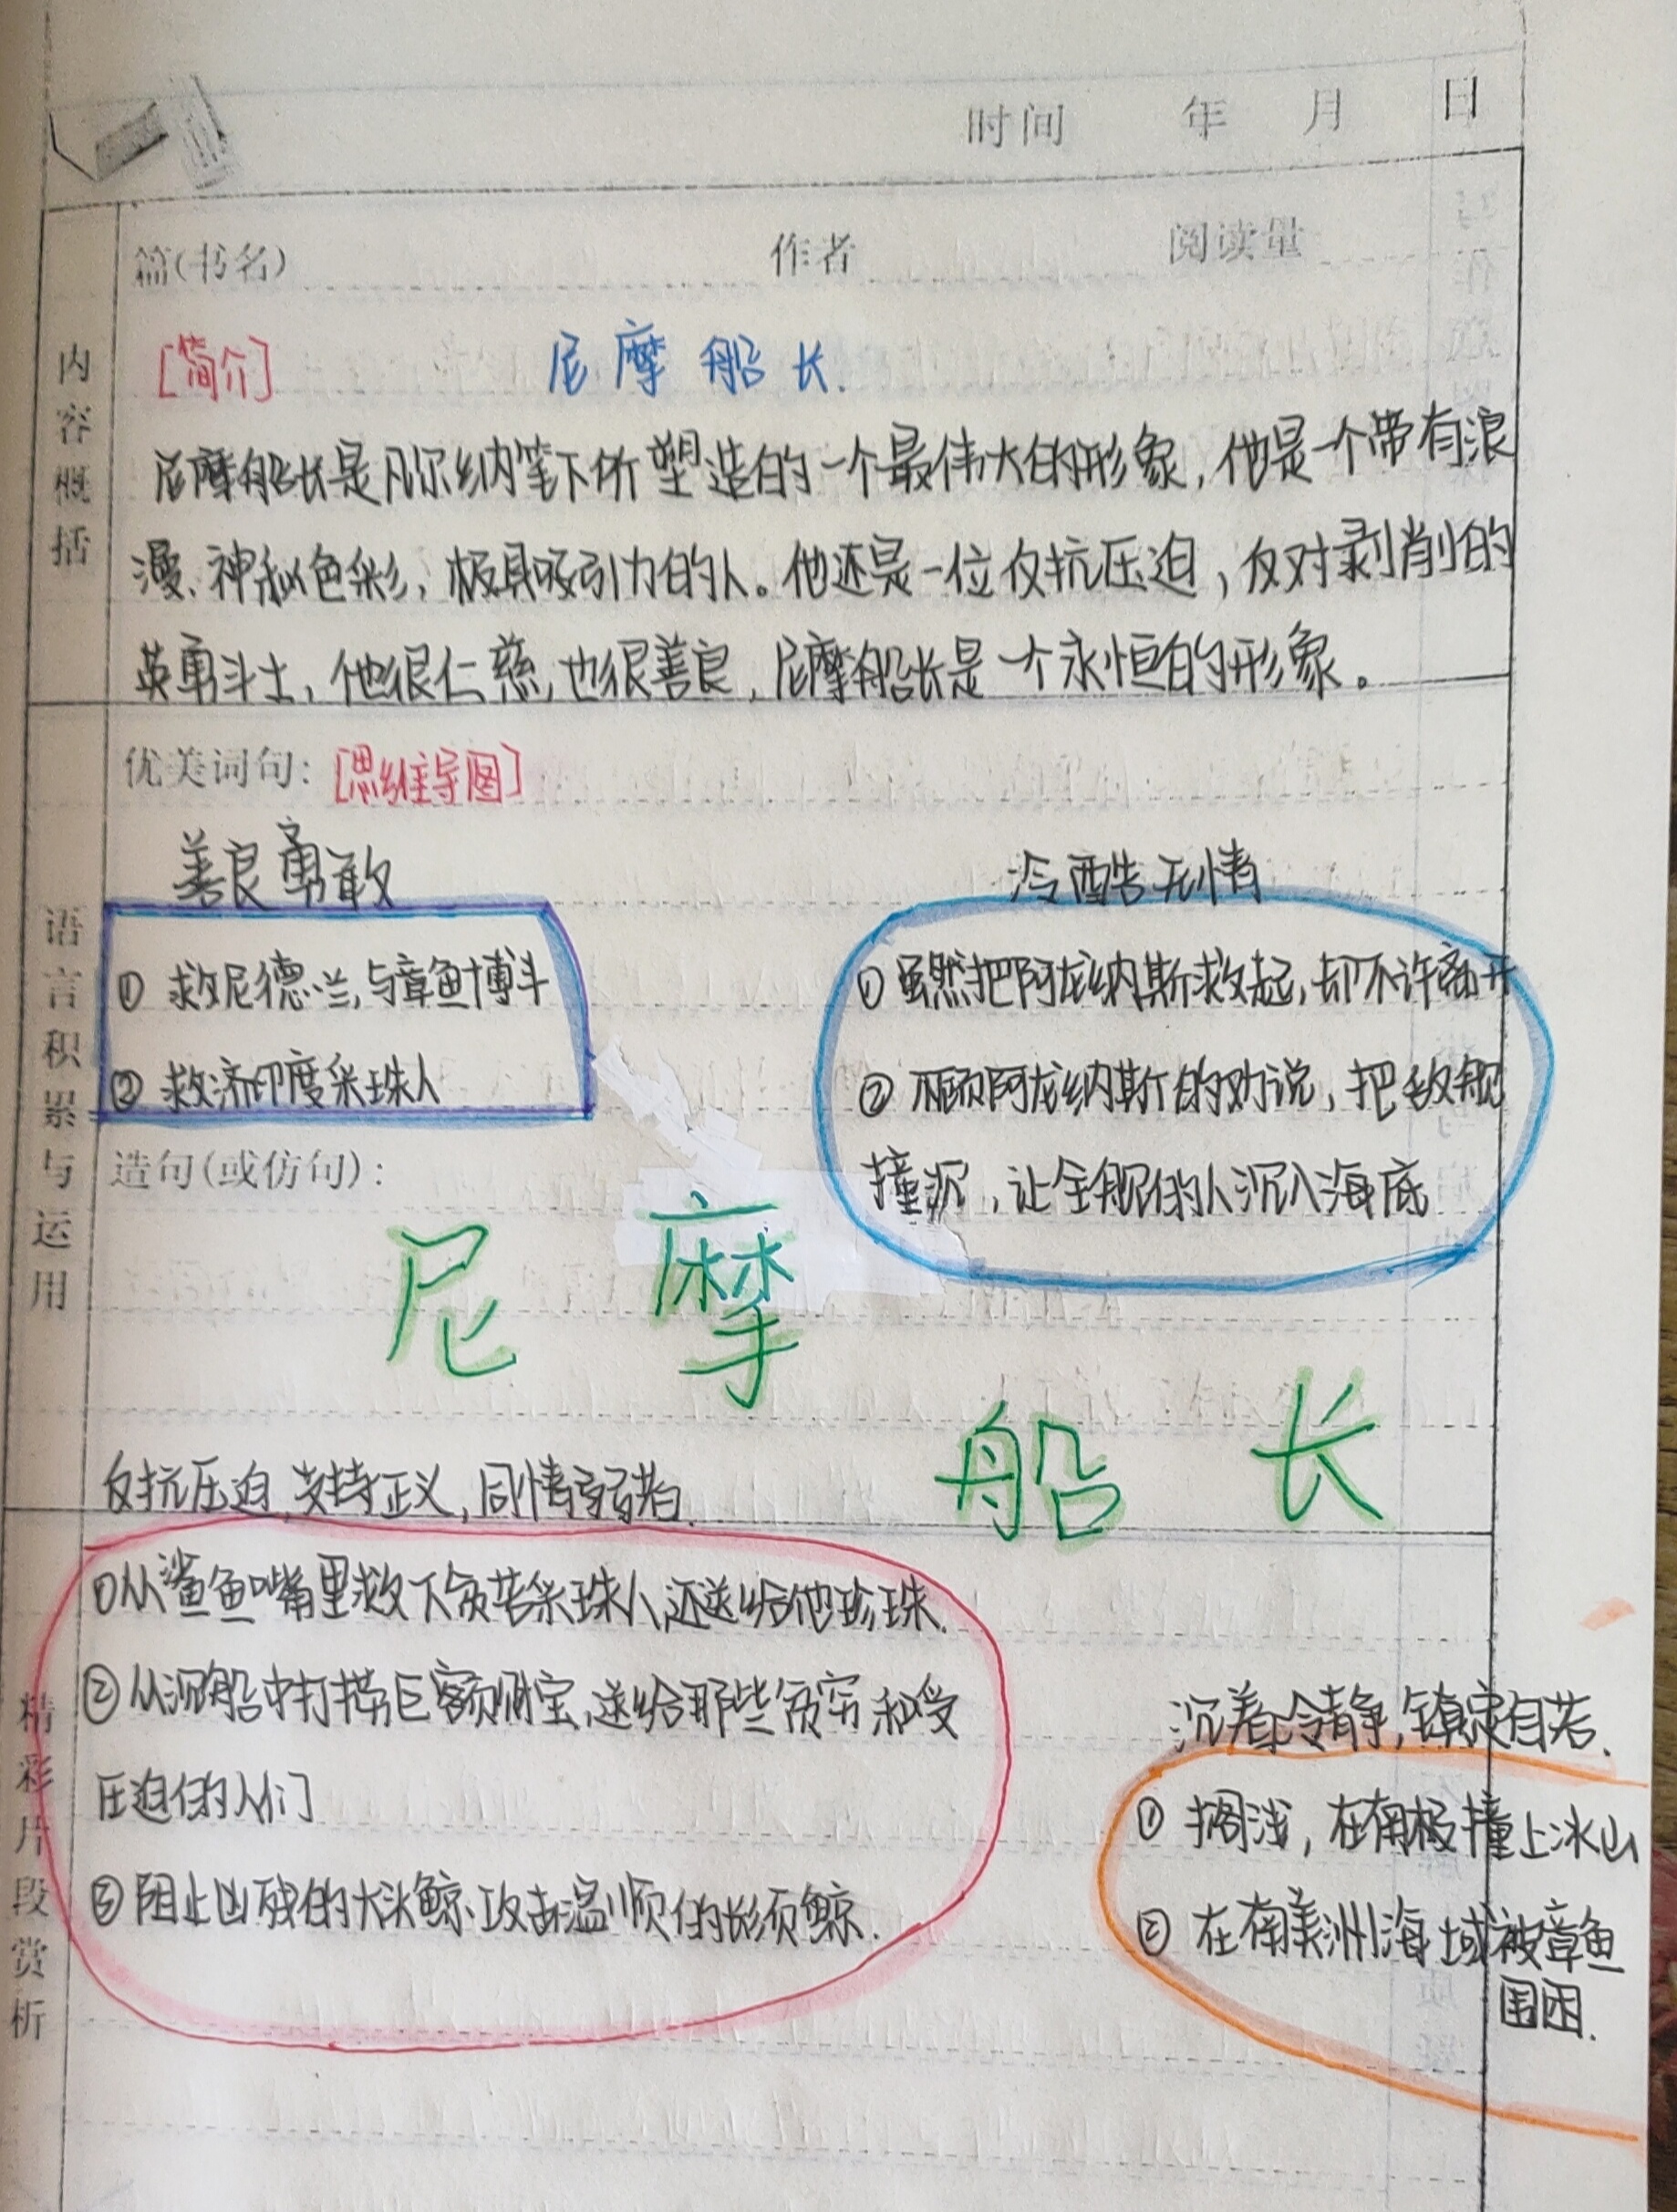 时间 年 月 日
篇(书名) 作者 阅读量
内容概括
[简介] 尼摩船长.
尼摩船长是凡尔纳笔下所塑造的一个最伟大的形象,他是一个带有浪
漫、神秘色彩,极具吸引力的人。他还是一位反抗压迫,反对剥削的
英勇斗士,他很仁慈,也很善良,尼摩船长是一个永恒的形象。
语言积累与运用
优美词句:[思维导图]
善良勇敢
① 救尼德·兰,与章鱼博斗
② 救济印度采珠人
冷酷无情
① 虽然把阿龙纳斯救起,却不许离开
② 不顾阿龙纳斯的劝说,把敌舰
撞沉,让全舰的人沉入海底
造句(或仿句):
尼摩
船长
反抗压迫,支持正义,同情弱者.
精彩片段赏析
①从鲨鱼嘴里救下贫苦采珠人,还送给他珍珠.
②从沉船中打捞巨额财宝,送给那些贫穷和受
压迫的人们
③阻止凶残的大头鲸攻击温顺的长须鲸.
沉着冷静,镇定自若.
① 搁浅,在南极撞上冰山
② 在南美洲海域被章鱼
围困.